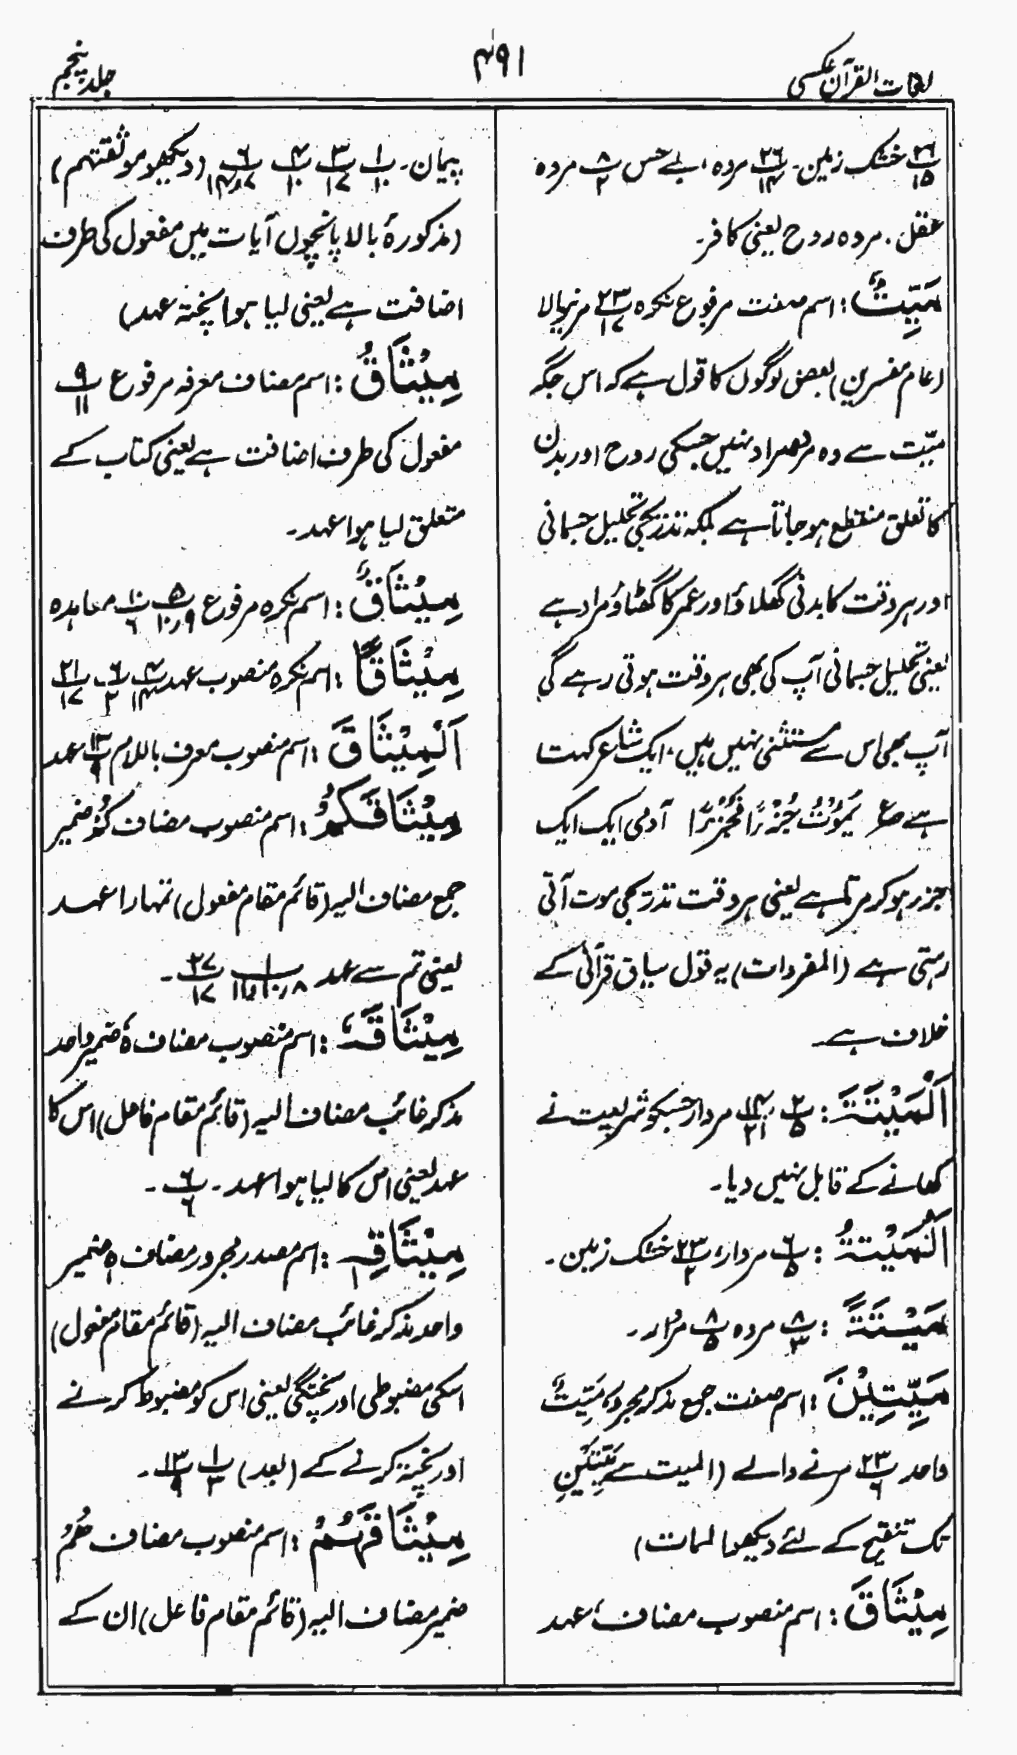 لغات القرآن عکسی
۴۹۱
جلد پنجم
۲۶/۱۵ خشک زمین۔ ۲۶/۱۴ مردہ، بے حس ۸/۲ مردہ
عقل۔ مردہ روح یعنی کافر۔
مَیِّتٌ: اسم صفت مرفوع نکرہ ۲۳/۱۷ مرنیوالا
(عام مفسرین) بعض لوگوں کا قول ہے کہ اس جگہ
میّت سے وہ مراد نہیں جسکی روح اور بدن
کا تعلق منقطع ہو جاتا ہے بلکہ تدریجی تحلیل جسمانی
اور ہر وقت کا بدنی گھلاؤ اور عمر کا گھٹاؤ مراد ہے
یعنی تحلیل جسمانی آپ کی بھی ہر وقت ہوتی رہے گی
آپ بھی اس سے مستثنیٰ نہیں ہیں، ایک شاعر کہتا
ہے ع یَمُوْتُ جُزْءًا فَجُزْءًا آدمی ایک ایک
جزر ہو کر مرتا ہے یعنی ہر وقت تدریجی موت آتی
رہتی ہے (المفردات) یہ قول سیاق قرآنی کے
خلاف ہے۔
اَلْمَیْتَۃَ: ۲/۵ ۱۴/۲۱ مردار جسکو شریعت نے
کھانے کے قابل نہیں دیا۔
اَلْمَیْتَۃُ: ۶/۵ مردار، ۲۳/۲ خشک زمین۔
مَیْتَۃً: ۸/۳ مردہ ۸/۵ مردار۔
مَیِّتِیْنَ: اسم صفت جمع مذکر مجرور، مَیِّتٌ
واحد ۲۳/۶ مرنے والے (المیت سے مَیِّتِیْنِ
تک تنقیح کے لئے دیکھو لمات)
مِیْثَاقَ: اسم منصوب مضاف، عہد
پیمان۔ ۱/۱۰ ۳/۱۷ ۴/۱۰ ۶/۱۴،۷ (دیکھو موثقتہم)
(مذکورۂ بالا پانچوں آیات میں مفعول کی طرف
اضافت ہے یعنی لیا ہوا پختہ عہد)
مِیْثَاقُ: اسم مضاف معرفہ مرفوع ۹/۱۱
مفعول کی طرف اضافت ہے یعنی کتاب کے
متعلق لیا ہوا عہد۔
مِیْثَاقٌ: اسم نکرہ مرفوع ۵/۹،۱۰ ۱۰/۶ معاہدہ
مِیْثَاقًا: اسم نکرہ منصوب عہد ۴/۱۴ ۶/۲ ۲۱/۱۷
اَلْمِیْثَاقَ: اسم منصوب معرف باللام ۱۳/۹ عہد
مِیْثَاقَکُمْ: اسم منصوب مضاف کُمْ ضمیر
جمع مضاف الیہ (قائم مقام مفعول) تمہارا عہد
یعنی تم سے عہد ۱/۸،۱۰،۱۱ ۲۷/۱۷۔
مِیْثَاقَہٗ: اسم منصوب مضاف ہٗ ضمیر واحد
مذکر غائب مضاف الیہ (قائم مقام فاعل) اس کا
عہد یعنی اس کا لیا ہوا عہد۔ ۶/۶۔
مِیْثَاقِہٖ: اسم مصدر مجرور مضاف ہٖ ضمیر
واحد مذکر غائب مضاف الیہ (قائم مقام مفعول)
اسکی مضبوطی اور پختگی یعنی اس کو مضبوط کرنے
اور پختہ کرنے کے (بعد) ۱/۳ ۱۳/۹۔
مِیْثَاقَہُمْ: اسم منصوب مضاف ھُمْ
ضمیر مضاف الیہ (قائم مقام فاعل) ان کے